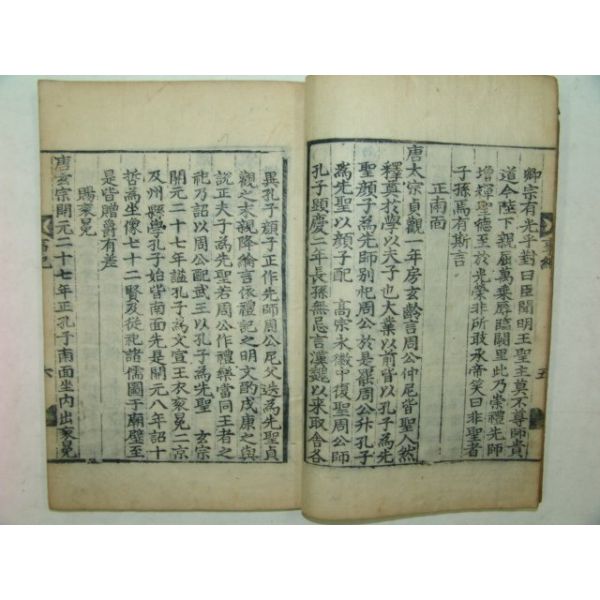 卿宗有光乎對曰臣聞明王聖主莫不尊師貴
道今陛下親屈萬乘辱臨闕里此乃崇禮先師
增輝聖德至於光榮非所敢承帝笑曰非聖者
子孫焉有斯言
正南面
唐太宗貞觀一年房玄齡言周公仲尼皆聖人然
釋奠於學以夫子也大業以前皆以孔子爲先
聖顔子爲先師別祀周公於是罷周公升孔子
爲先聖以顔子配 高宗永徽中復聖周公師
孔子顯慶二年長孫無忌言漢魏以來取舍各
異孔子顔子互作先師周公尼父迭爲先聖貞
觀之末親降綸言依禮記之明文酌成康之奧
說正夫子爲先聖若周公作禮樂當同王者之
祀乃詔以周公配武王以孔子爲先聖 玄宗
開元二十七年謚孔子爲文宣王衣衮冕二京
及州縣學孔子始皆南面先是開元八年詔十
哲爲坐像七十二賢及從祀諸儒圖于廟壁至
是皆贈爵有差
賜衮冕
唐玄宗開元二十七年正孔子南面坐內出衮冕
五
六